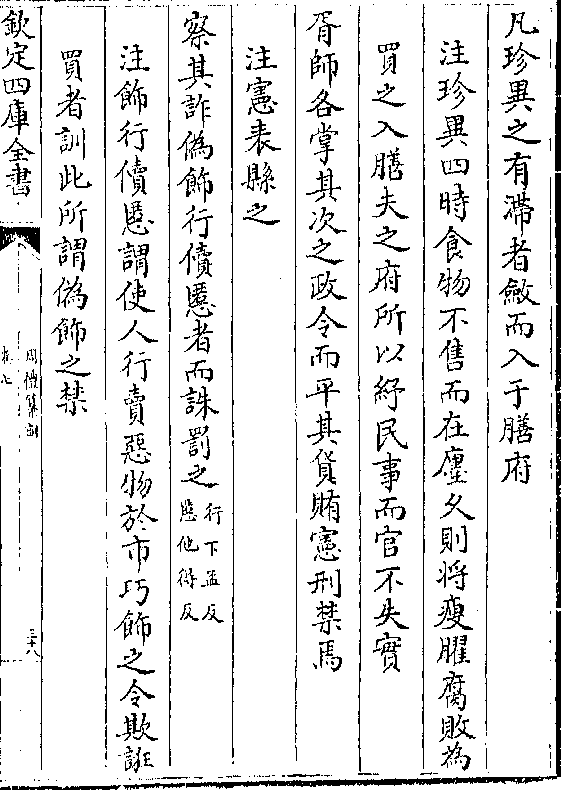 凡珍異之有滯者斂而入于膳府
注珍異四時食物不售而在廛久則將瘦臞腐敗為
買之入膳夫之府所以紓民事而官不失實
胥師各掌其次之政令而平其貨賄憲刑禁焉
注憲表縣之
察其詐偽飾行儥慝者而誅罰之行下孟反慝他得反
注飾行儥慝謂使人行賣惡物於市巧飾之令欺誑
買者訓此所謂偽飾之禁
欽定四庫全書
周禮纂訓
卷七
三十八